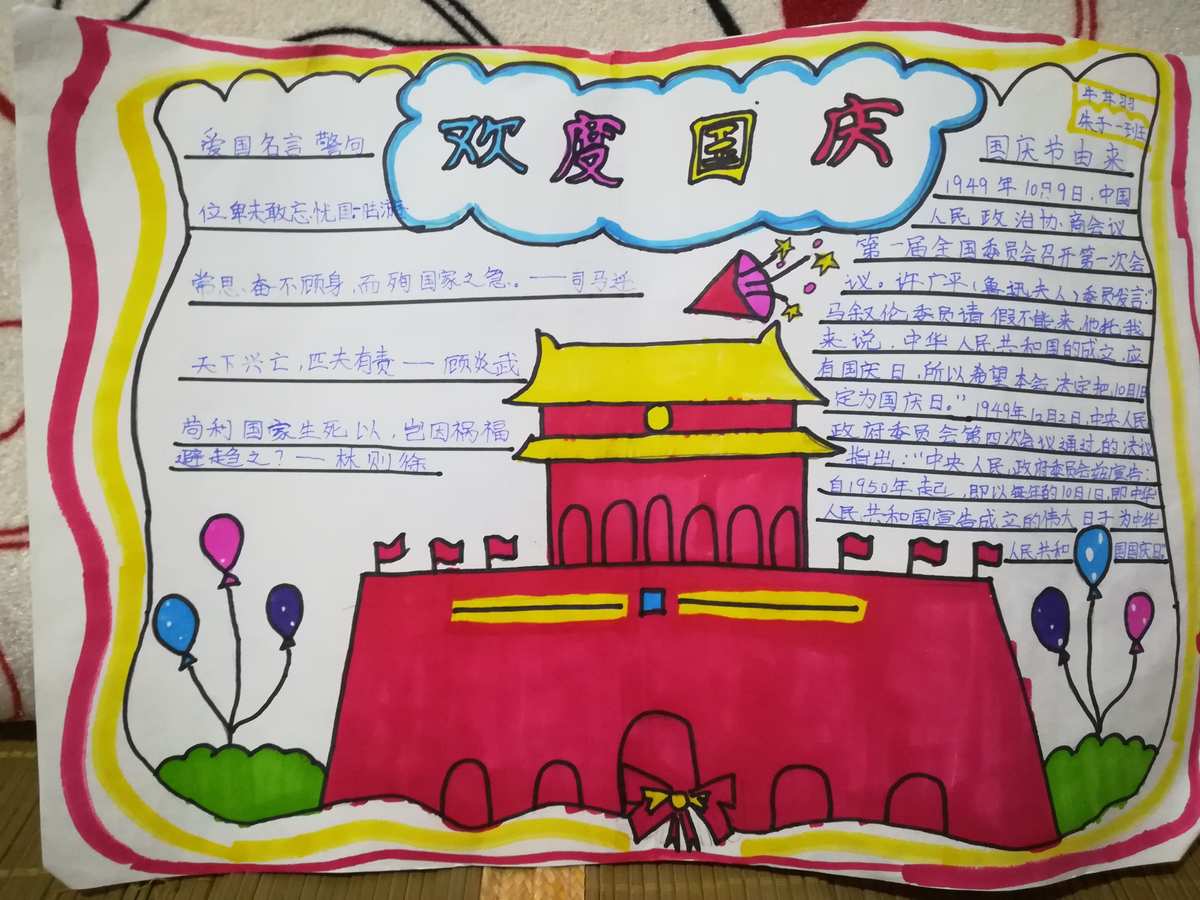 欢度国庆
爱国名言警句
位卑未敢忘忧国-陆游
常思奋不顾身,而殉国家之急。——司马迁
天下兴亡,匹夫有责——顾炎武
苟利国家生死以,岂因祸福
避趋之?——林则徐
朱子一班
国庆节由来
1949年10月9日,中国
人民政治协商会议
第一届全国委员会召开第一次会
议。许广平(鲁迅夫人)委员发言:“
马叙伦委员请假不能来,他托我
来说,中华人民共和国的成立,应
有国庆日,所以希望本会决定把10月1日
定为国庆日。”1949年12月2日,中央人民
政府委员会第四次会议通过的决议
指出:“中央人民政府委员会兹宣告:
自1950年起,即以每年的10月1日,即中华
人民共和国宣告成立的伟大日子,为中华
人民共和国国庆日